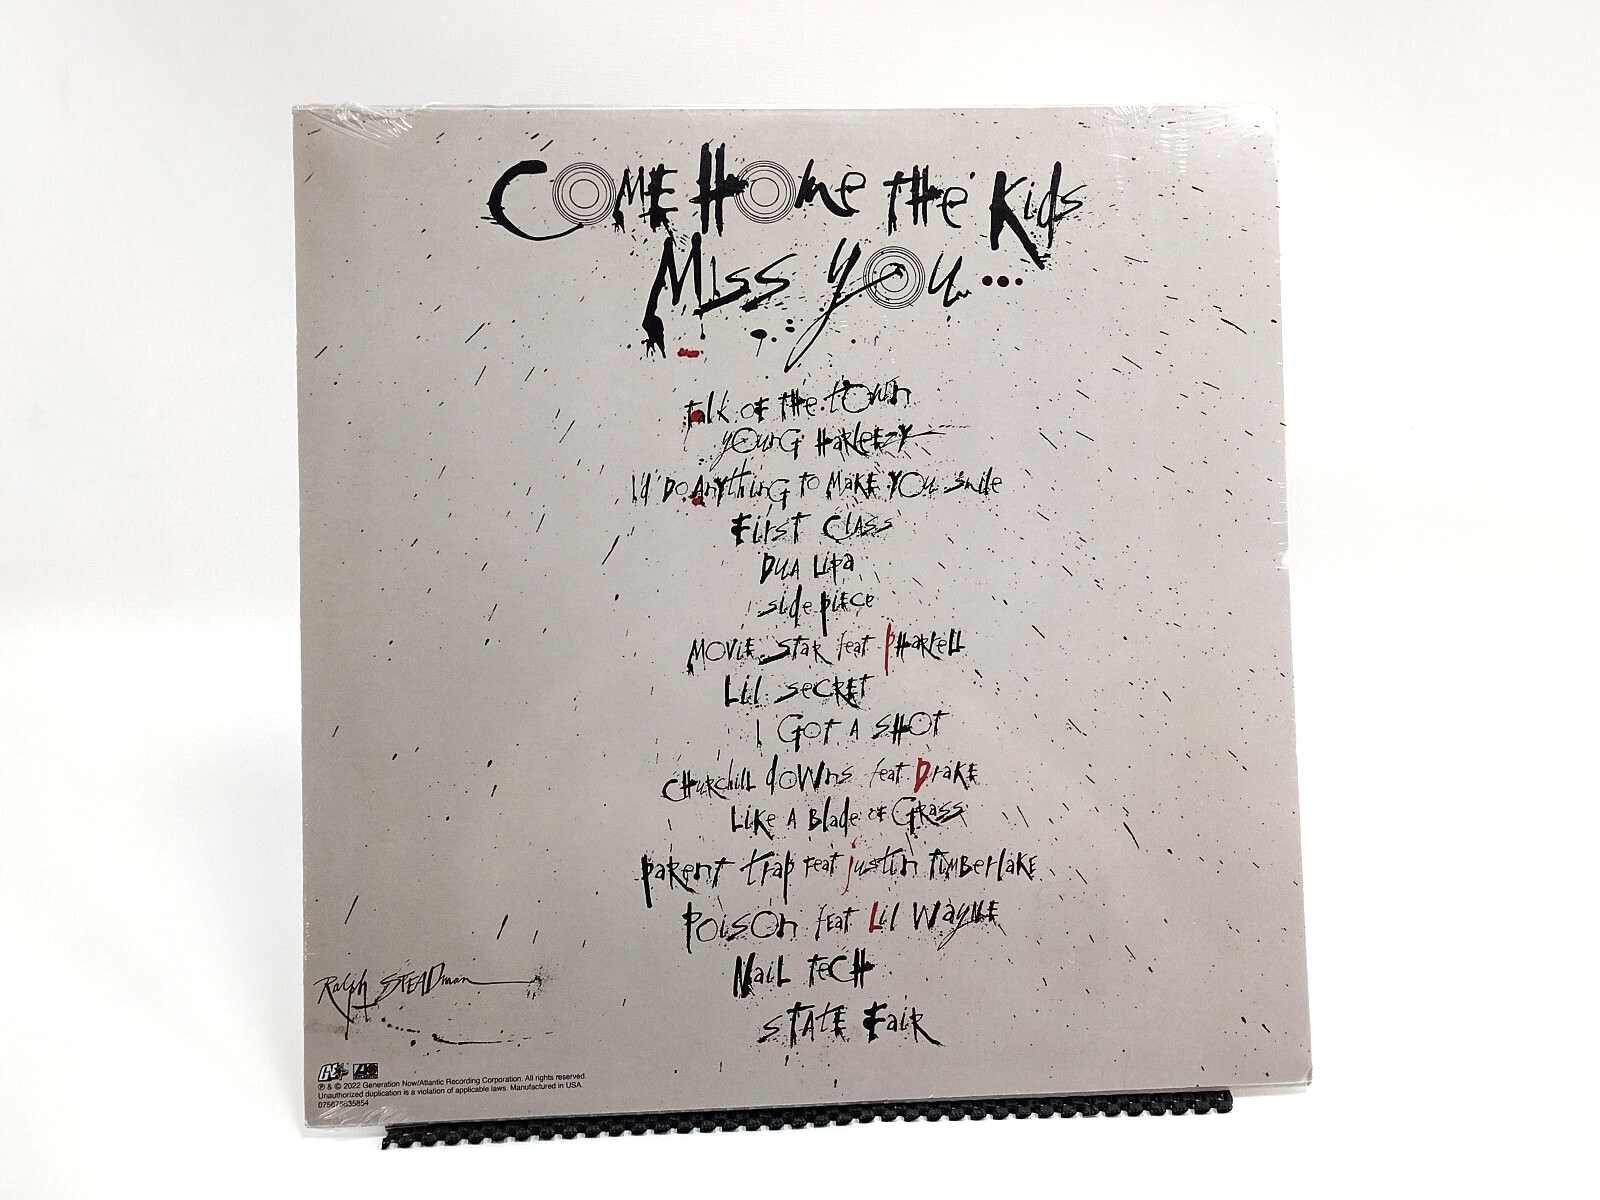 Come Home the Kids
Miss you...
Talk of the town
young Harleezy
I'd Do Anything to Make You Smile
First Class
Dua Lipa
side piece
Movie Star feat Pharrell
Lil secret
I Got A SHot
CHurchill downs feat Drake
Like A Blade of Grass
parent trap feat justin timberlake
Poison feat Lil Wayne
Nail tecH
state Fair
Ralph STEADman
℗ & © 2022 Generation Now/Atlantic Recording Corporation. All rights reserved.
Unauthorized duplication is a violation of applicable laws. Manufactured in USA.